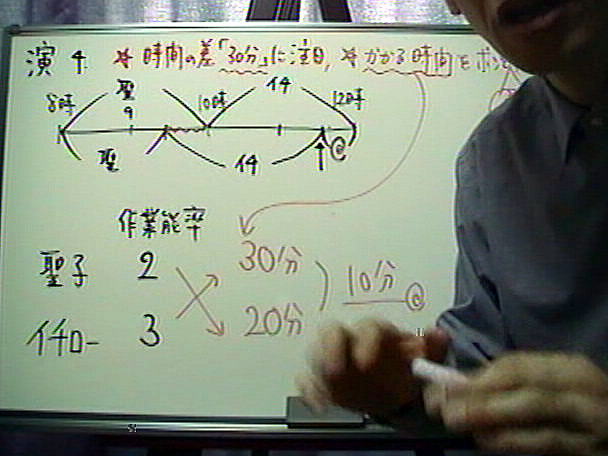 演 4. ☆ 時間の差「30分」に注目, ☆ かかる時間を求
聖 イチ
8時 9 10時 12時
聖 イチ @
作業能率
聖子 2 30分
10分 @
イチロー 3 20分